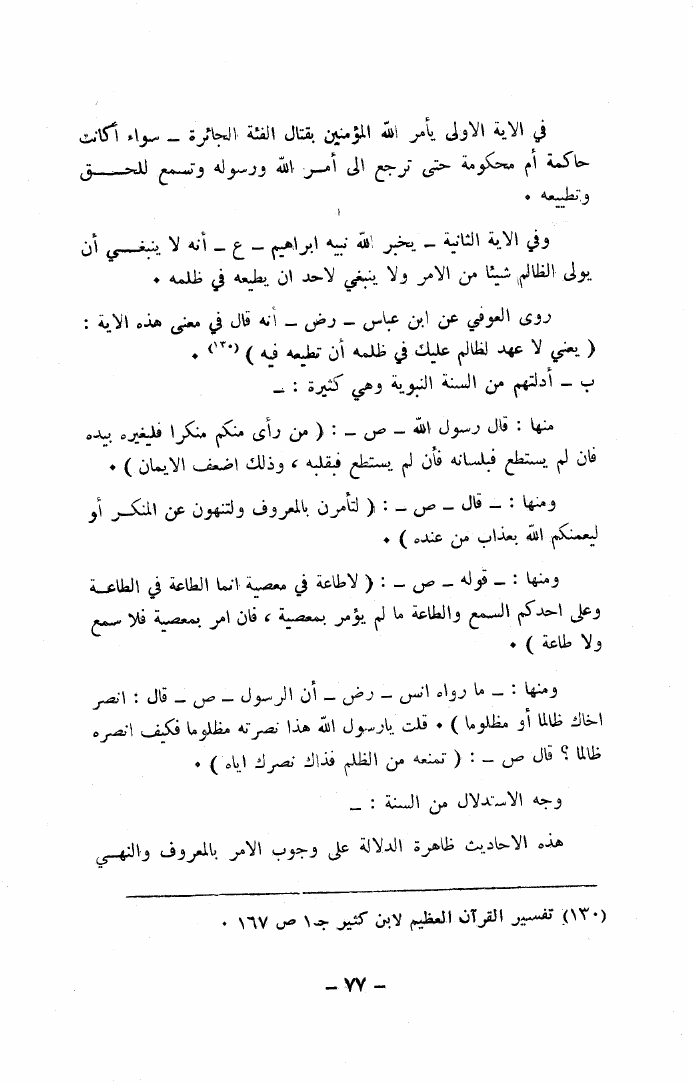 في الاية الاولى يأمر الله المؤمنين بقتال الفئة الجائرة ــ سواء أكانت
حاكمة أم محكومة حتى ترجع الى أمـــر الله ورسوله وتسمع للحـــــق
وتطيعه ٠
وفي الاية الثانية ــ يخبر الله نبيه ابراهيم ــ ع ــ أنه لا ينبغـــي أن
يولى الظالم شيئا من الامر ولا ينبغي لاحد ان يطيعه في ظلمه ٠
روى العوفي عن ابن عباس ــ رض ــ أنه قال في معنى هذه الاية :
( يعني لا عهد لظالم عليك في ظلمه أن تطيعه فيه ) (١٣٠) ٠
ب ــ أدلتهم من السنة النبوية وهي كثيرة : ــ
منها : قال رسول الله ــ ص ــ : ( من رأى منكم منكرا فليغيره بيده
فان لم يستطع فبلسانه فأن لم يستطع فبقلبه ، وذلك اضعف الايمان ) ٠
ومنها : ــ قال ــ ص ــ : ( لتأمرن بالمعروف ولتنهون عن المنكـــر أو
ليعمنكم الله بعذاب من عنده ) ٠
ومنها : ــ قوله ــ ص ــ : ( لاطاعة في معصية انما الطاعة في الطاعـــة
وعلى احدكم السمع والطاعة ما لم يؤمر بمعصية ، فان امر بمعصية فلا سمع
ولا طاعة ) ٠
ومنها : ــ ما رواه انس ــ رض ــ أن الرسول ــ ص ــ قال : انصر
اخاك ظالما أو مظلوما ) ٠ قلت يارسول الله هذا نصرته مظلوما فكيف انصره
ظالما ؟ قال ص ــ : ( تمنعه من الظلم فذاك نصرك اياه ) ٠
وجه الاستدلال من السنة : ــ
هذه الاحاديث ظاهرة الدلالة على وجوب الامر بالمعروف والنهـــي
(١٣٠) تفسير القرآن العظيم لابن كثير جـ١ ص ١٦٧ ٠
ــ ٧٧ ــ